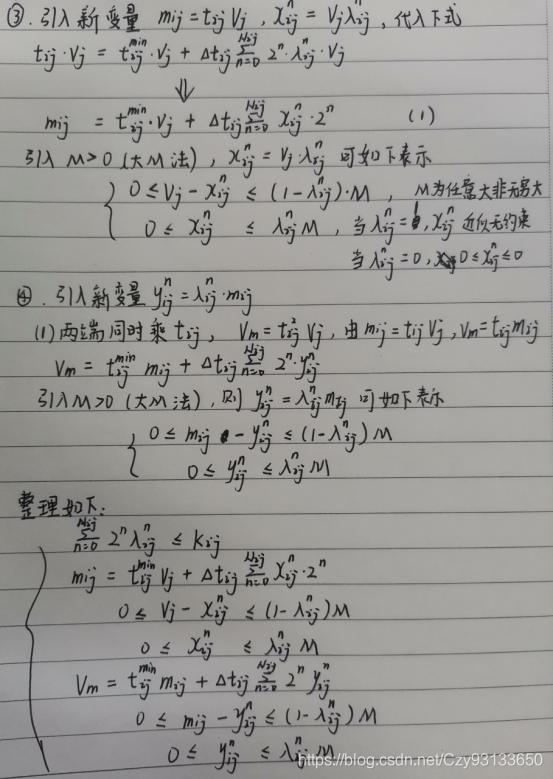 ③. 引入新变量 mij = tij Vj , xijⁿ = Vj λijⁿ, 代入下式
tij · Vj = tij^min · Vj + Δtij Σ_{n=0}^{Nij} 2ⁿ · λijⁿ · Vj
⇓
mij = tij^min · Vj + Δtij Σ_{n=0}^{Nij} xijⁿ · 2ⁿ (1)
引入 M>0 (大M法) , xijⁿ = Vj · λijⁿ 可如下表示
{ 0 ≤ Vj - xijⁿ ≤ (1-λijⁿ)·M , M为任意大非无穷大
0 ≤ xijⁿ ≤ λijⁿ M , 当 λijⁿ = , xijⁿ 近似无约束
当 λijⁿ = 0, 0 ≤ xijⁿ ≤ 0
④. 引入新变量 yijⁿ = λijⁿ · mij
(1) 两端同时乘 tij , Vm = tij² Vj , 由 mij = tij Vj , Vm = tij mij
Vm = tij^min mij + Δtij Σ_{n=0}^{Nij} 2ⁿ · yijⁿ
引入 M>0 (大M法) , 则 yijⁿ = λijⁿ mij 可如下表示
{ 0 ≤ mij - yijⁿ ≤ (1-λijⁿ) M
0 ≤ yijⁿ ≤ λijⁿ M
整理如下:
{ Σ_{n=0}^{Nij} 2ⁿ λijⁿ ≤ Kij
mij = tij^min Vj + Δtij Σ_{n=0}^{Nij} xijⁿ · 2ⁿ
0 ≤ Vj - xijⁿ ≤ (1-λijⁿ) M
0 ≤ xijⁿ ≤ λijⁿ M
Vm = tij^min mij + Δtij Σ_{n=0}^{Nij} 2ⁿ yijⁿ
0 ≤ mij - yijⁿ ≤ (1-λijⁿ) M
0 ≤ yijⁿ ≤ λijⁿ M
https://blog.csdn.net/Czy93133650